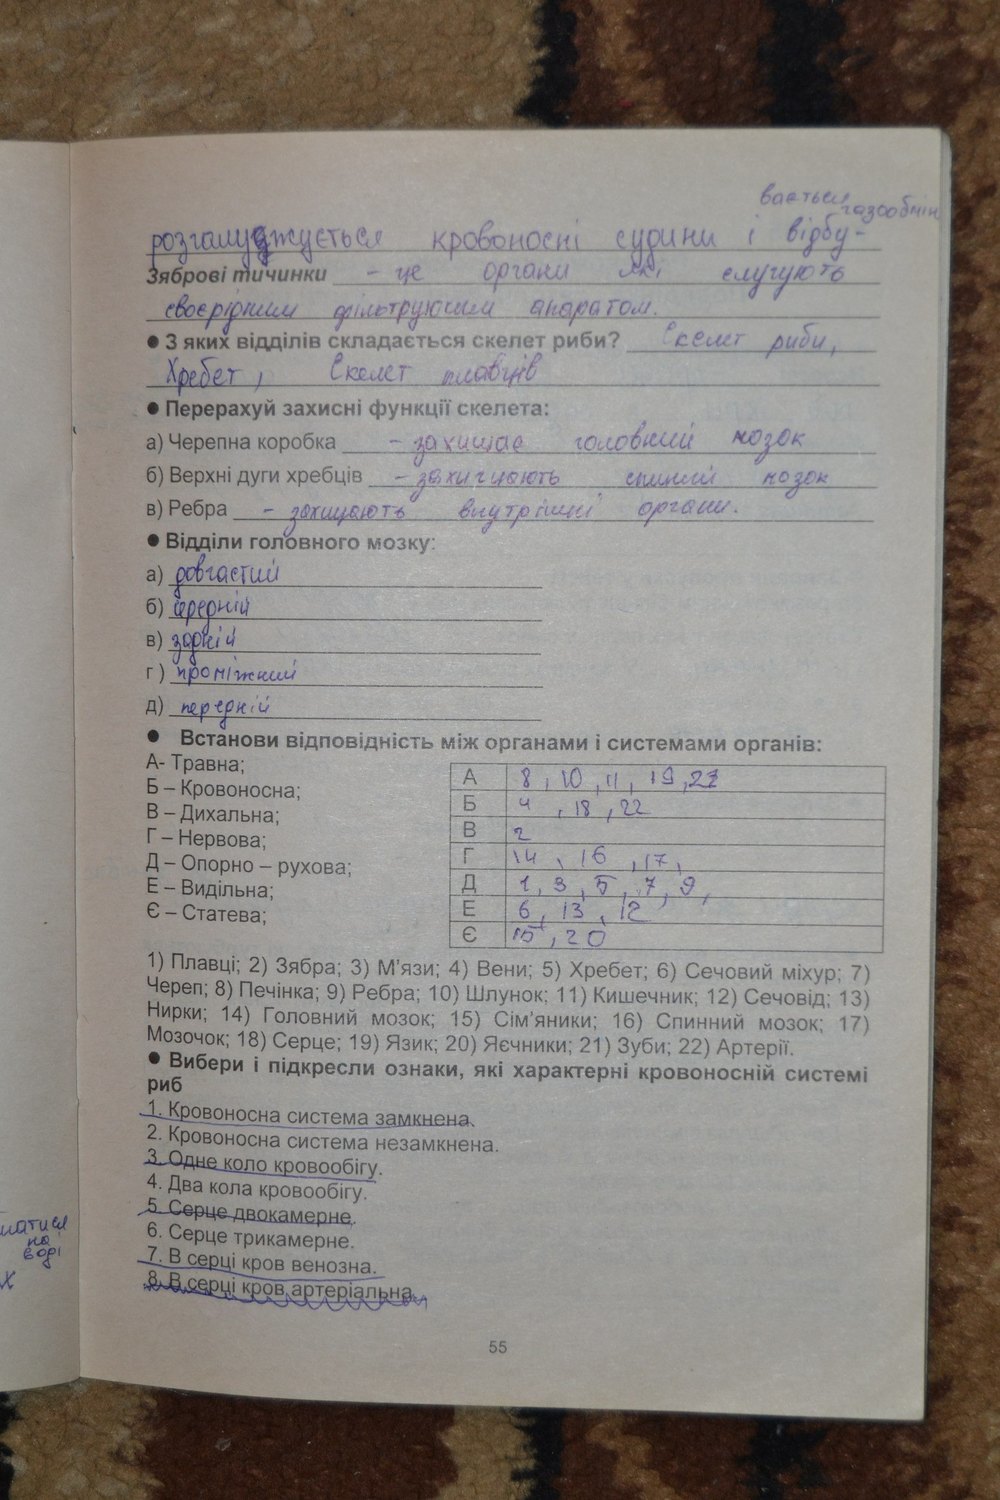 вається
газообмін
розгалуджується кровоносні судини і відбу-
Зяброві тичинки - це органи які слугують
своєрідним фільтруючим апаратом.
● З яких відділів складається скелет риби? Скелет риби,
Хребет, Скелет плавців
● Перерахуй захисні функції скелета:
а) Черепна коробка - захищає головний мозок
б) Верхні дуги хребців - захищають спинний мозок
в) Ребра - захищають внутрішні органи.
● Відділи головного мозку:
а) довгастий
б) середній
в) задній
г) проміжний
д) передній
● Встанови відповідність між органами і системами органів:
А- Травна;
Б – Кровоносна;
В – Дихальна;
Г – Нервова;
Д – Опорно – рухова;
Е – Видільна;
Є – Статева;
А 8, 10, 11, 19, 21
Б 4, 18, 22
В 2
Г 14, 16, 17,
Д 1, 3, 5, 7, 9,
Е 6, 13, 12
Є 15, 20
1) Плавці; 2) Зябра; 3) М'язи; 4) Вени; 5) Хребет; 6) Сечовий міхур; 7)
Череп; 8) Печінка; 9) Ребра; 10) Шлунок; 11) Кишечник; 12) Сечовід; 13)
Нирки; 14) Головний мозок; 15) Сім'яники; 16) Спинний мозок; 17)
Мозочок; 18) Серце; 19) Язик; 20) Яєчники; 21) Зуби; 22) Артерії.
● Вибери і підкресли ознаки, які характерні кровоносній системі
риб
1. Кровоносна система замкнена.
2. Кровоносна система незамкнена.
3. Одне коло кровообігу.
4. Два кола кровообігу.
5. Серце двокамерне.
6. Серце трикамерне.
7. В серці кров венозна.
8. В серці кров артеріальна.
на
воді
х
55